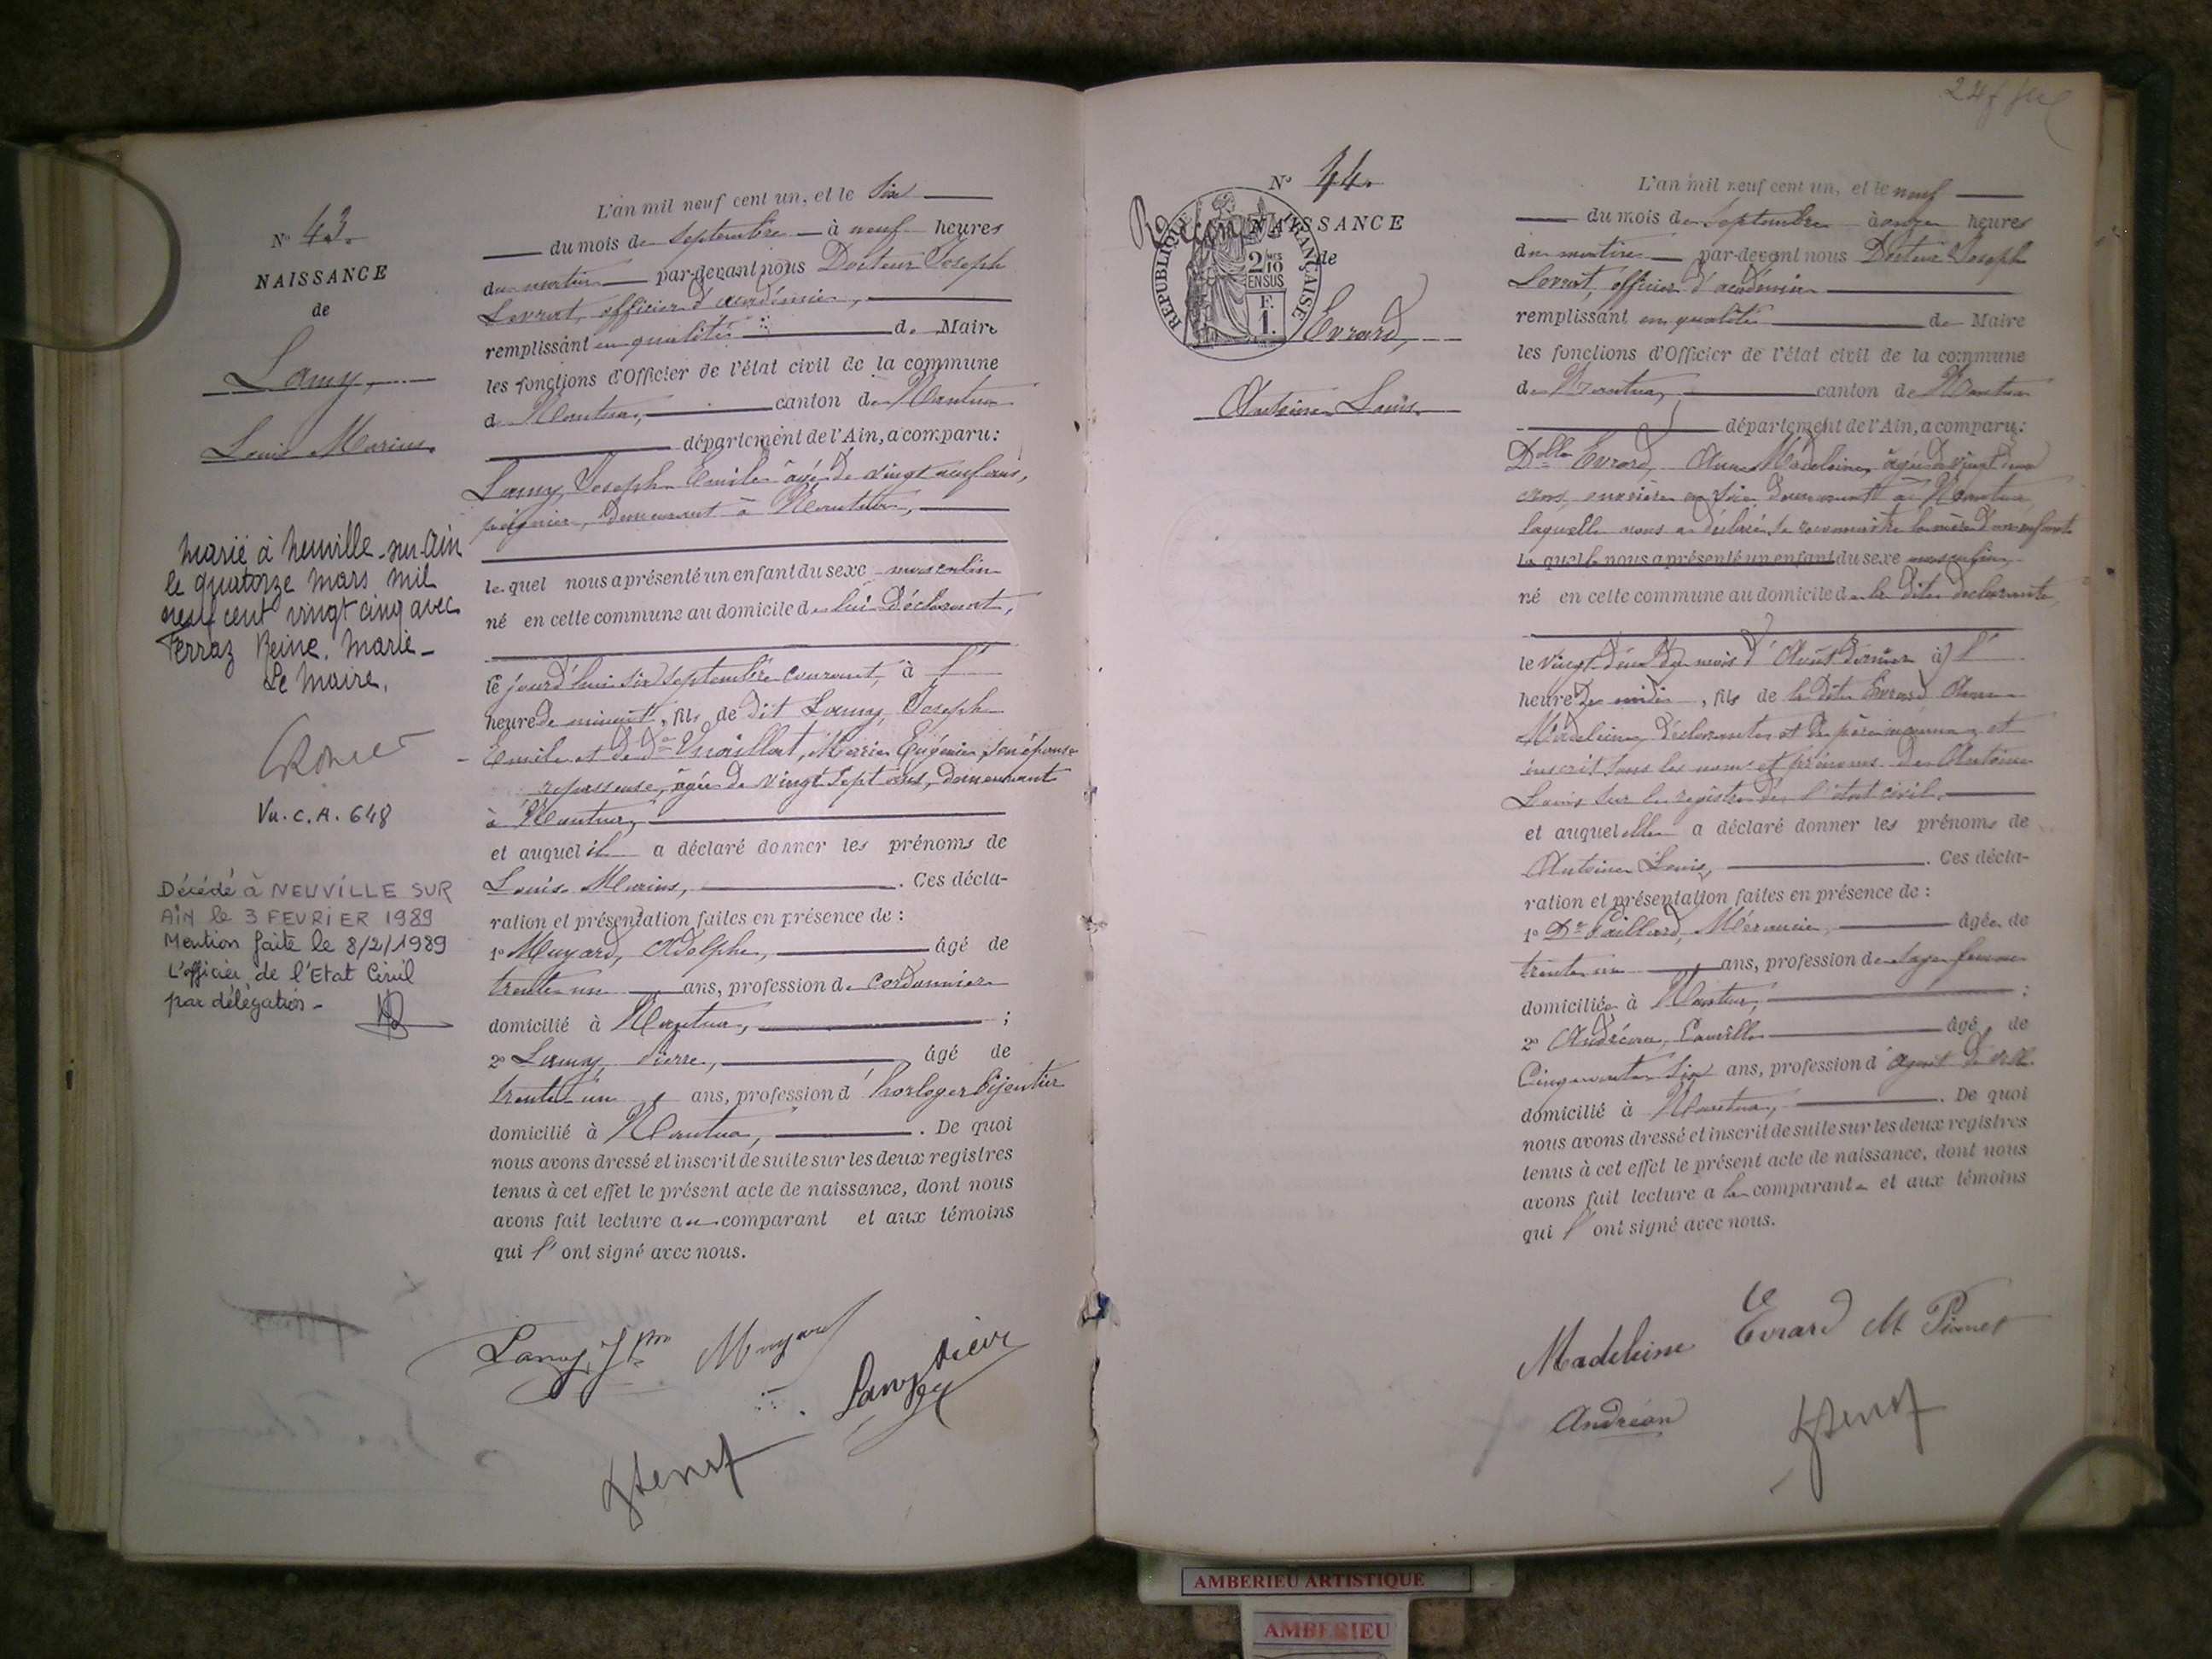 N° 43.
NAISSANCE
de
Lamy,
Louis Marius.
Marié à Neuville-sur-Ain
le quatorze mars mil
neuf cent vingt cinq avec
Terraz Reine. Marie-
Le Maire,
Vu. C.A. 648
Décédé à NEUVILLE SUR
AIN le 3 FEVRIER 1989
Mention faite le 8/2/1989
L'officier de l'Etat Civil
par délégation-
L'an mil neuf cent un, et le six
du mois de septembre à neuf heures
du matin par-devant nous Docteur Joseph
Levrat, officier d'académie,
remplissant en qualité de Maire
les fonctions d'Officier de l'état civil de la commune
de Nantua, canton de Nantua
département de l'Ain, a comparu:
Lamy, Joseph Emile âgé de vingt neuf ans,
demeurant à Nantua,
lequel nous a présenté un enfant du sexe masculin
né en cette commune au domicile de lui déclarant,
le jourd'hui six septembre courant, à l'
heure de minuit, fils de dit Lamy, Joseph
Emile et de Marie Eugénie son épouse
repasseuse, âgée de vingt sept ans, demeurant
à Nantua,
et auquel il a déclaré donner les prénoms de
Louis Marius, . Ces décla-
ration et présentation faites en présence de :
1° Muyard, Adolphe, âgé de
trente un ans, profession de cordonnier
domicilié à Nantua, ;
2° Lamy, Pierre, âgé de
trente un ans, profession d'horloger bijoutier
domicilié à Nantua, . De quoi
nous avons dressé et inscrit de suite sur les deux registres
tenus à cet effet le présent acte de naissance, dont nous
avons fait lecture au comparant et aux témoins
qui l'ont signé avec nous.
Lamy Muyard
Lamy Pierre
N° 44.
NAISSANCE
de
RÉPUBLIQUE FRANÇAISE
2/10 EN SUS
F. 1.
Evrard,
Antoine Louis.
L'an mil neuf cent un, et le neuf
du mois de septembre à onze heures
du matin par-devant nous Docteur Joseph
Levrat, officier d'académie
remplissant en qualité de Maire
les fonctions d'Officier de l'état civil de la commune
de Nantua, canton de Nantua
département de l'Ain, a comparu:
Dlle Evrard, Anne Madeleine, âgée de vingt deux
ans, ouvrière en soie demeurant à Nantua,
laquelle nous a déclaré se reconnaître la mère d'un enfant
laquelle nous a présenté un enfant du sexe masculin
né en cette commune au domicile de la dite déclarante
le vingt deux du mois d'Août dernier à l'
heure de midi, fils de la dite Evrard Anne
Madeleine, déclarante et de père inconnu, et
inscrit sous les noms et prénoms de Antoine
Louis sur le registre de l'état civil,
et auquel elle a déclaré donner les prénoms de
Antoine Louis, . Ces décla-
ration et présentation faites en présence de :
1° De Paillard, âgée de
trente un ans, profession de sage femme
domiciliée à Nantua, ;
2° Andréan, Camille âgé de
cinquante six ans, profession d'agent de ville
domicilié à Nantua, . De quoi
nous avons dressé et inscrit de suite sur les deux registres
tenus à cet effet le présent acte de naissance, dont nous
avons fait lecture à la comparante et aux témoins
qui l'ont signé avec nous.
Madeleine Evrard
Andréan
AMBERIEU ARTISTIQUE
AMBERIEU